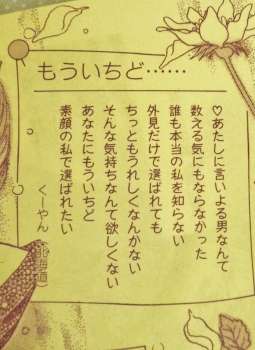 もういちど……
♡あたしに言いよる男なんて
数える気にもならなかった
誰も本当の私を知らない
外見だけで選ばれても
ちっともうれしくなんかない
そんな気持ちなんて欲しくない
あなたにもういちど
素顔の私で選ばれたい
くーやん(北海道)